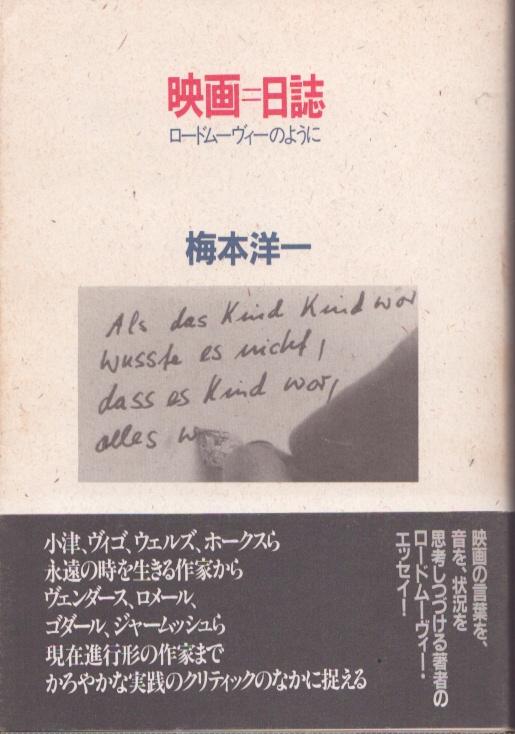 映画=日誌
ロードムーヴィーのように
梅本洋一
Als das Kind Kind war
wusste es nicht,
dass es Kind war,
alles w
小津、ヴィゴ、ウェルズ、ホークスら
永遠の時を生きる作家から
ヴェンダース、ロメール、
ゴダール、ジャームッシュら
現在進行形の作家まで
かろやかな実践のクリティックのなかに捉える
映画の言葉を、
音を、状況を
思考しつづける著者の
ロードムーヴィー・
エッセイ!